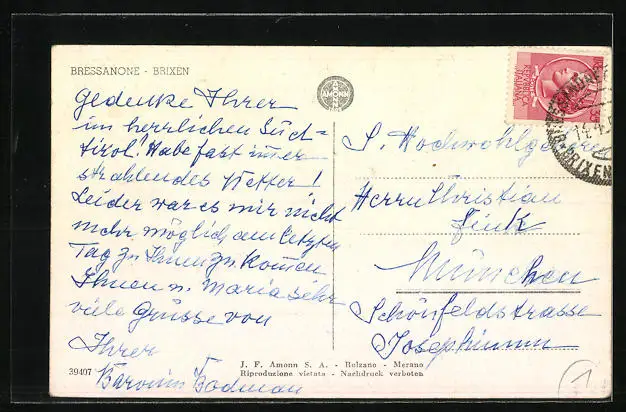 BRESSANONE - BRIXEN
Gedenke Ihrer
im herrlichen Süd=
tirol! Habe fast immer
strahlendes Wetter!
Leider war es mir nicht
mehr möglich am letzten
Tag zu Ihnen zu kommen
Ihnen u. Maria sehr
viele Grüsse von
Ihrer
Baronin Bodman
39407
AMONN
J. F. Amonn S. A. - Bolzano - Merano
Riproduzione vietata - Nachdruck verboten
REPVBBLICA
ITALIANA
BRIXEN
S. Hochwohlgeboren
Herrn Christian
Fink
München
Schönfeldstrasse
Josephinum
1